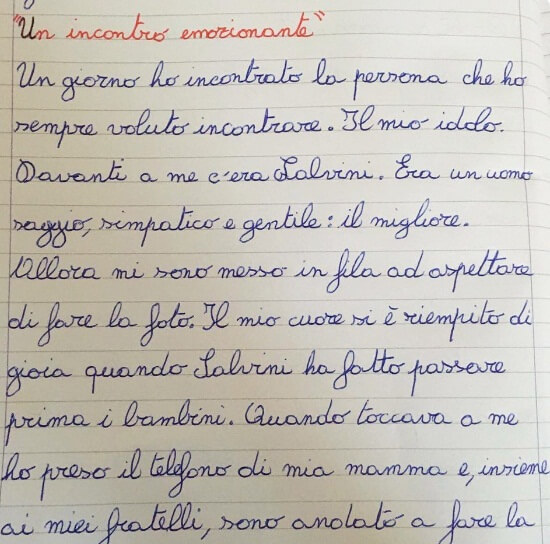 "Un incontro emozionante"
Un giorno ho incontrato la persona che ho
sempre voluto incontrare. Il mio idolo.
Davanti a me c'era Salvini. Era un uomo
saggio, simpatico e gentile: il migliore.
Allora mi sono messo in fila ad aspettare
di fare la foto. Il mio cuore si è riempito di
gioia quando Salvini ha fatto passare
prima i bambini. Quando toccava a me
ho preso il telefono di mia mamma e, insieme
ai miei fratelli, sono andato a fare la